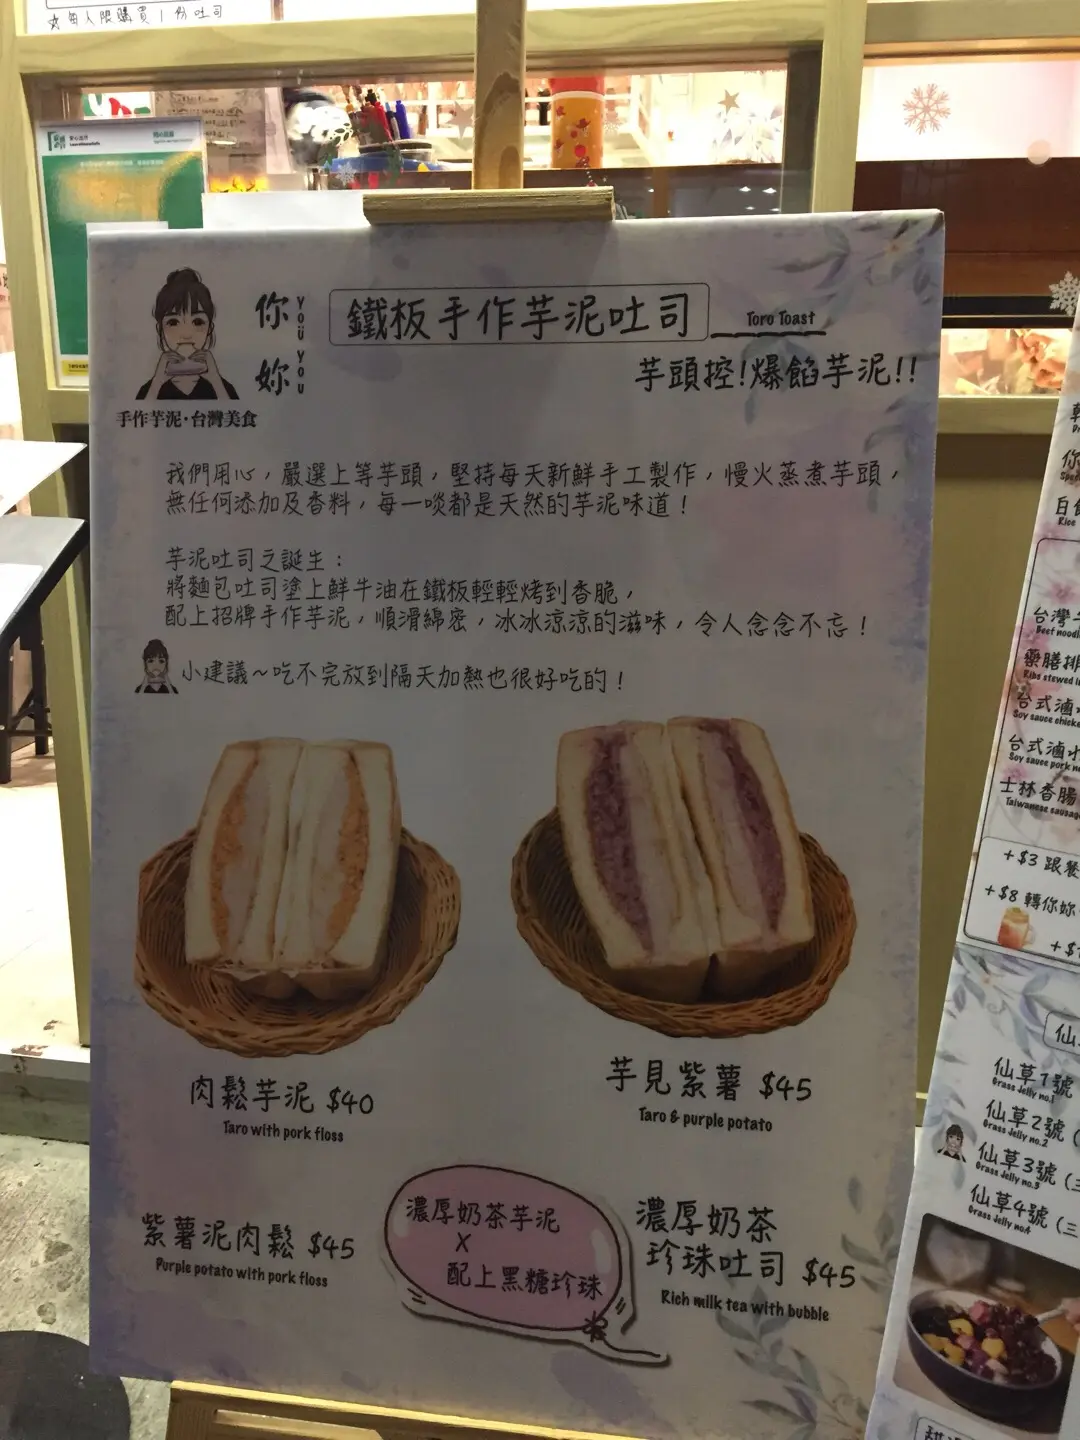 ☆每人限購買1份吐司
安心出行
LeaveHomeSafe
你妳
YOU YOU
鐵板手作芋泥吐司
Toro Toast
手作芋泥·台灣美食
芋頭控!爆餡芋泥!!
我們用心，嚴選上等芋頭，堅持每天新鮮手工製作，慢火蒸煮芋頭，
無任何添加及香料，每一啖都是天然的芋泥味道！
芋泥吐司之誕生：
將麵包吐司塗上鮮牛油在鐵板輕輕烤到香脆，
配上招牌手作芋泥，順滑綿密，冰冰涼涼的滋味，令人念念不忘！
小建議～吃不完放到隔天加熱也很好吃的！
肉鬆芋泥 $40
Taro with pork floss
芋見紫薯 $45
Taro & purple potato
紫薯泥肉鬆 $45
Purple potato with pork floss
濃厚奶茶芋泥
X
配上黑糖珍珠
濃厚奶茶
珍珠吐司 $45
Rich milk tea with bubble
你
白飯
Rice
台灣
Beef noodl
藥膳排
Ribs stewed i
台式滷
Soy sauce chicke
台式滷水
Soy sauce pork n
士林香腸
Taiwanese sausag
+$3 跟餐
+$8 轉你妳
仙
仙草1號
Grass Jelly no.1
仙草2號 (
Grass Jelly no.2
仙草3號 (三
Grass Jelly no.3
仙草4號 (三
Grass Jelly no.4